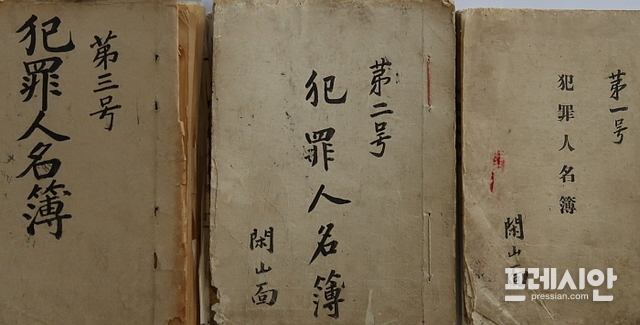 第一号
犯罪人名簿
閑山面
第二号
犯罪人名簿
閑山面
第三号
犯罪人名簿
프레시안
pressian.com